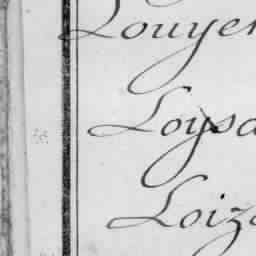 Louyer
Loysa
Loiz